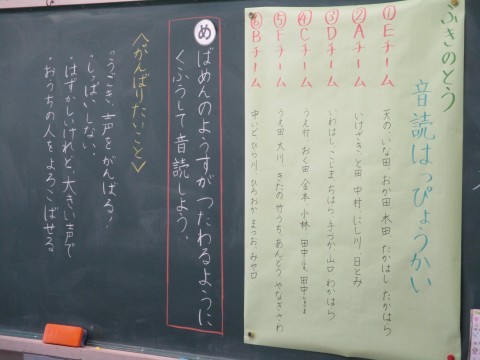 ふきのとう
音読はっぴょうかい
①Eチーム
天の、いな田 おか田 木田 たかはし たかはら
②Aチーム
いけざき と田 中村 にし川 日とみ
③Dチーム
いわはし、こじま ちはら、手づか 山口 わかはら
④Cチーム
うえ村 おく田 金本 小林 田中
⑤Fチーム
うえ田 大川 きたの 竹うち あんどう やなぎさわ
⑥Bチーム
中いど ひら川 ひろおか まつお、みや口
め ばめんのようすがつたわるように
くふうして音読しよう。
<がんばりたいこと>
・うごき、声をがんばる!
・しっぱいしない、
・はずかしいけれど、大きい声で
・おうちの人をよろこばせる。